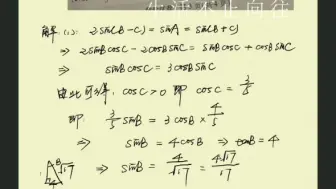 生活不止向往
解: (2): 2sin(B-C) = sinA = sin(B+C)
⇒ 2sinBcosC - 2cosBsinC = sinBcosC + cosBsinC
⇒ sinBcosC = 3cosBsinC
由此可得: cosC>0 即 cosC = 3/5
即 3/5 sinB = 3cosB × 4/5
⇒ sinB = 4cosB ⇒ tanB = 4
B √17 ⇒ sinB = 4/√17 = 4√17/17